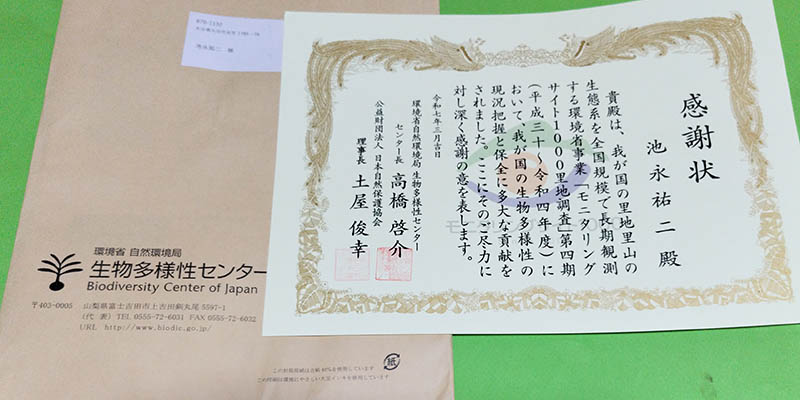 感謝状
池永祐二 殿
貴殿は、我が国の里地里山の
生態系を全国規模で長期観測
する環境省事業「モニタリング
サイト1000里地調査」第四期
(平成三十～令和四年度)に
おいて、我が国の生物多様性の
現況把握と保全に多大な貢献を
されました。ここにそのご尽力に
対し深く感謝の意を表します。
令和七年三月吉日
環境省自然環境局 生物多様性センター
センター長 高橋啓介
公益財団法人 日本自然保護協会
理事長 土屋俊幸
環境省 自然環境局
生物多様性センター
Biodiversity Center of Japan
〒403-0005 山梨県富士吉田市上吉田剣丸尾 5597-1
(代 表) TEL 0555-72-6031 FAX 0555-72-6032
URL http://www.biodic.go.jp/
紙
この印刷物は環境にやさしい大豆インキを使用しています